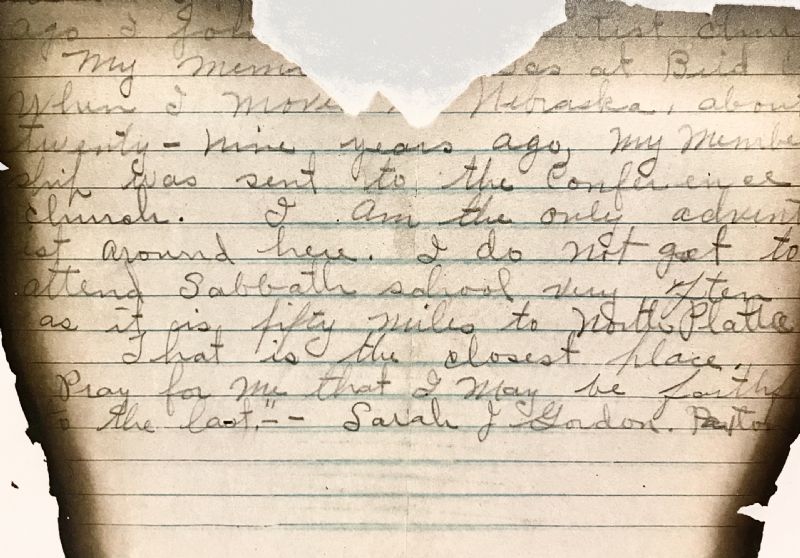 ago I
My Mem as at Bird
When I move Nebraska, about
twenty-nine years ago, My Membe
ship was sent to the Conference
church. I am the only advent
ist around here. I do not get to
attend Sabbath school very often
as it is fifty miles to North Platte
That is the closest place.
Pray for me that I May be faith
to the last."- Sarah J Gordon. Paxton